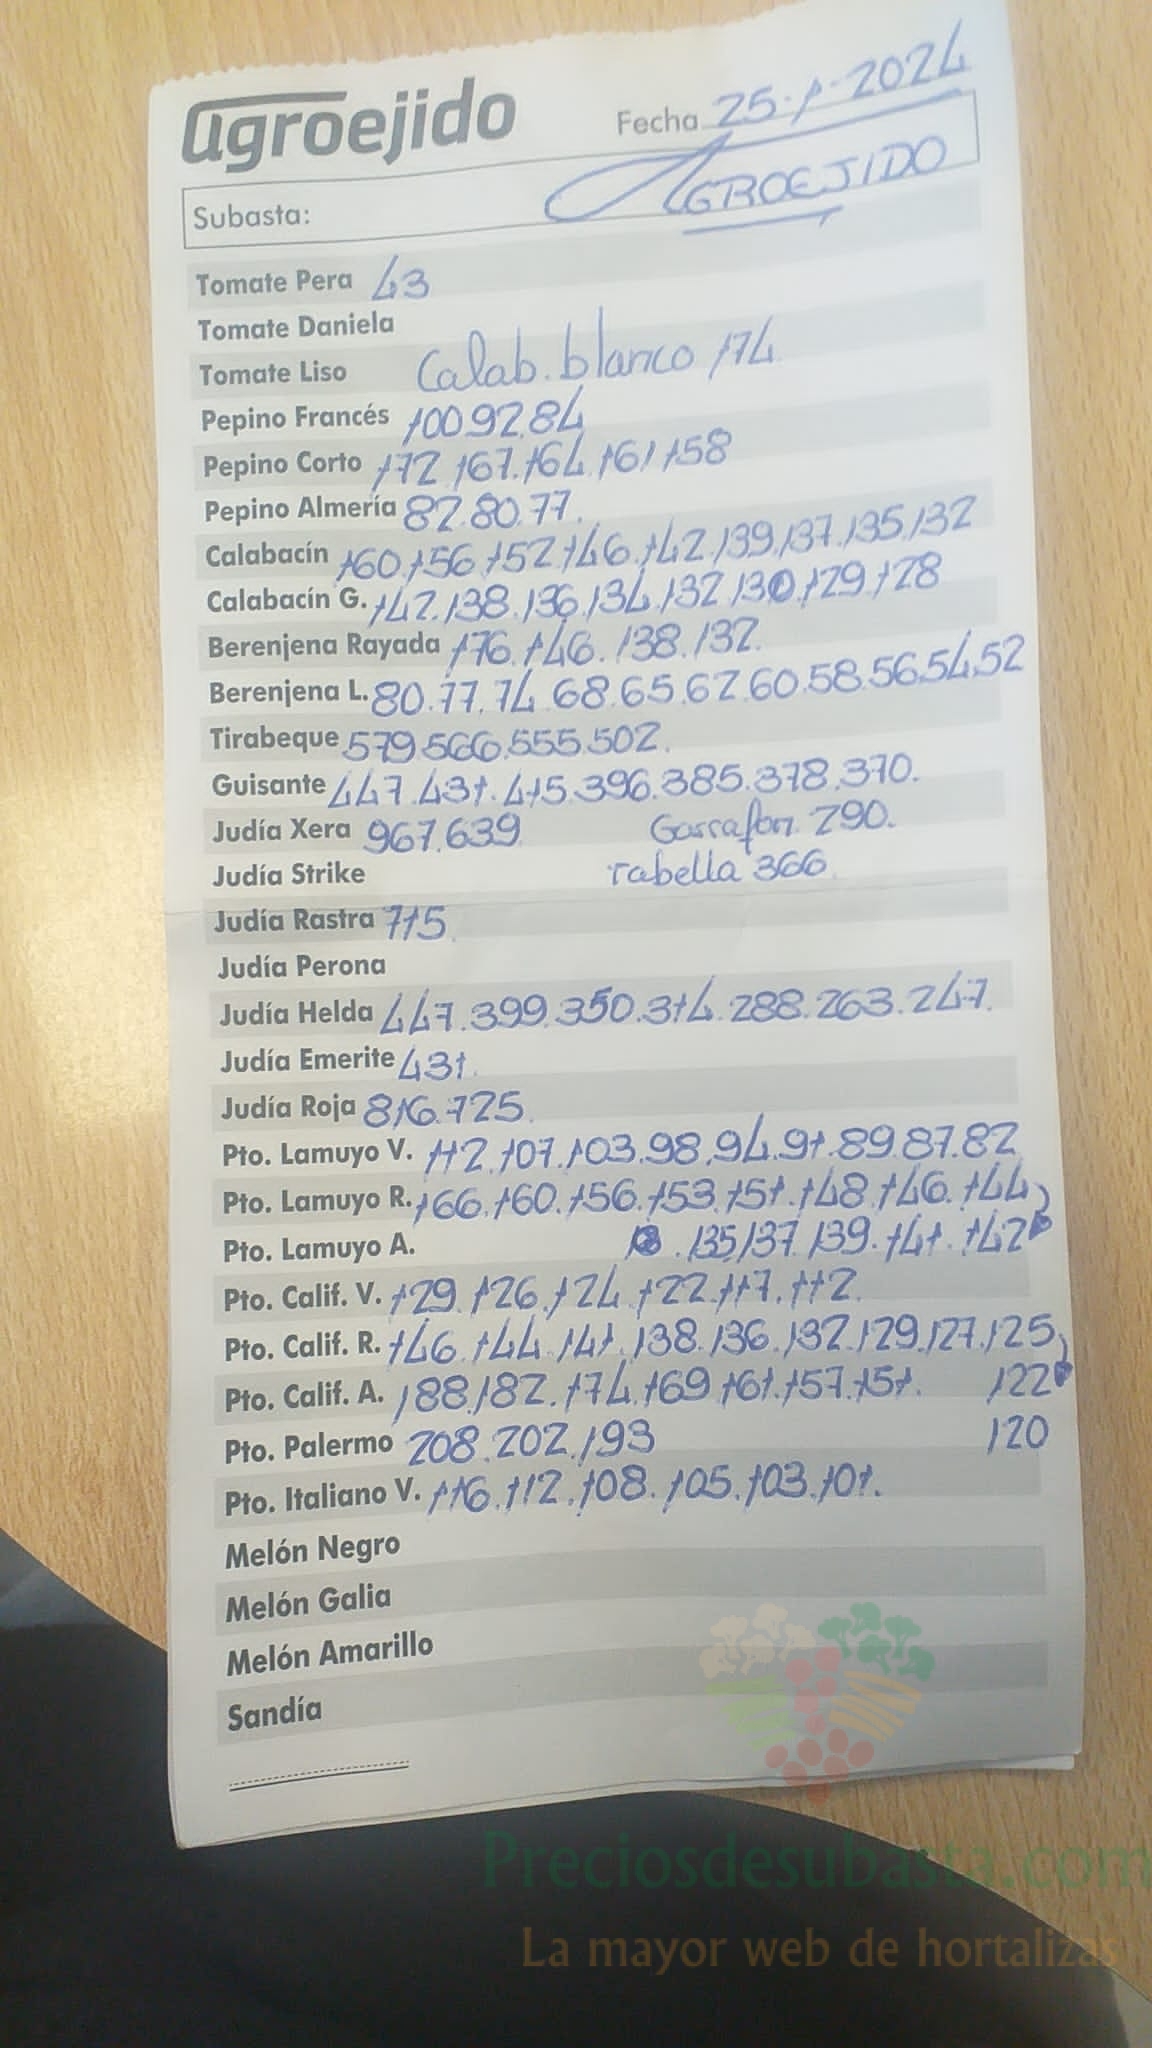 agroejido
Fecha 25-1-2024
Subasta: AGROEJIDO
Tomate Pera 43
Tomate Daniela
Tomate Liso Calab. blanco 174
Pepino Francés 100.92.84
Pepino Corto 172.167.164.161.158
Pepino Almería 82.80.77.
Calabacín 160.156.152.146.142.139.137.135.132
Calabacín G. 142.138.136.134.132.130.129.128
Berenjena Rayada 176.146.138.132.
Berenjena L. 80.77.74.68.65.62.60.58.56.54.52
Tirabeque 579.566.555.502.
Guisante 447.431.415.396.385.378.370.
Judía Xera 967.639 Garrafon 290.
Judía Strike rabella 366
Judía Rastra 715.
Judía Perona
Judía Helda 447.399.350.314.288.263.247.
Judía Emerite 431.
Judía Roja 816.725.
Pto. Lamuyo V. 112.107.103.98.94.91.89.87.82
Pto. Lamuyo R. 166.160.156.153.151.148.146.144
Pto. Lamuyo A. 135.137.139.141.142
Pto. Calif. V. 129.126.124.122.117.112.
Pto. Calif. R. 146.144.141.138.136.132.129.127.125
Pto. Calif. A. 188.182.174.169.161.157.151. 122
Pto. Palermo 208.202.193 120
Pto. Italiano V. 116.112.108.105.103.101.
Melón Negro
Melón Galia
Melón Amarillo
Sandía
Preciosdesubasta.com
La mayor web de hortalizas